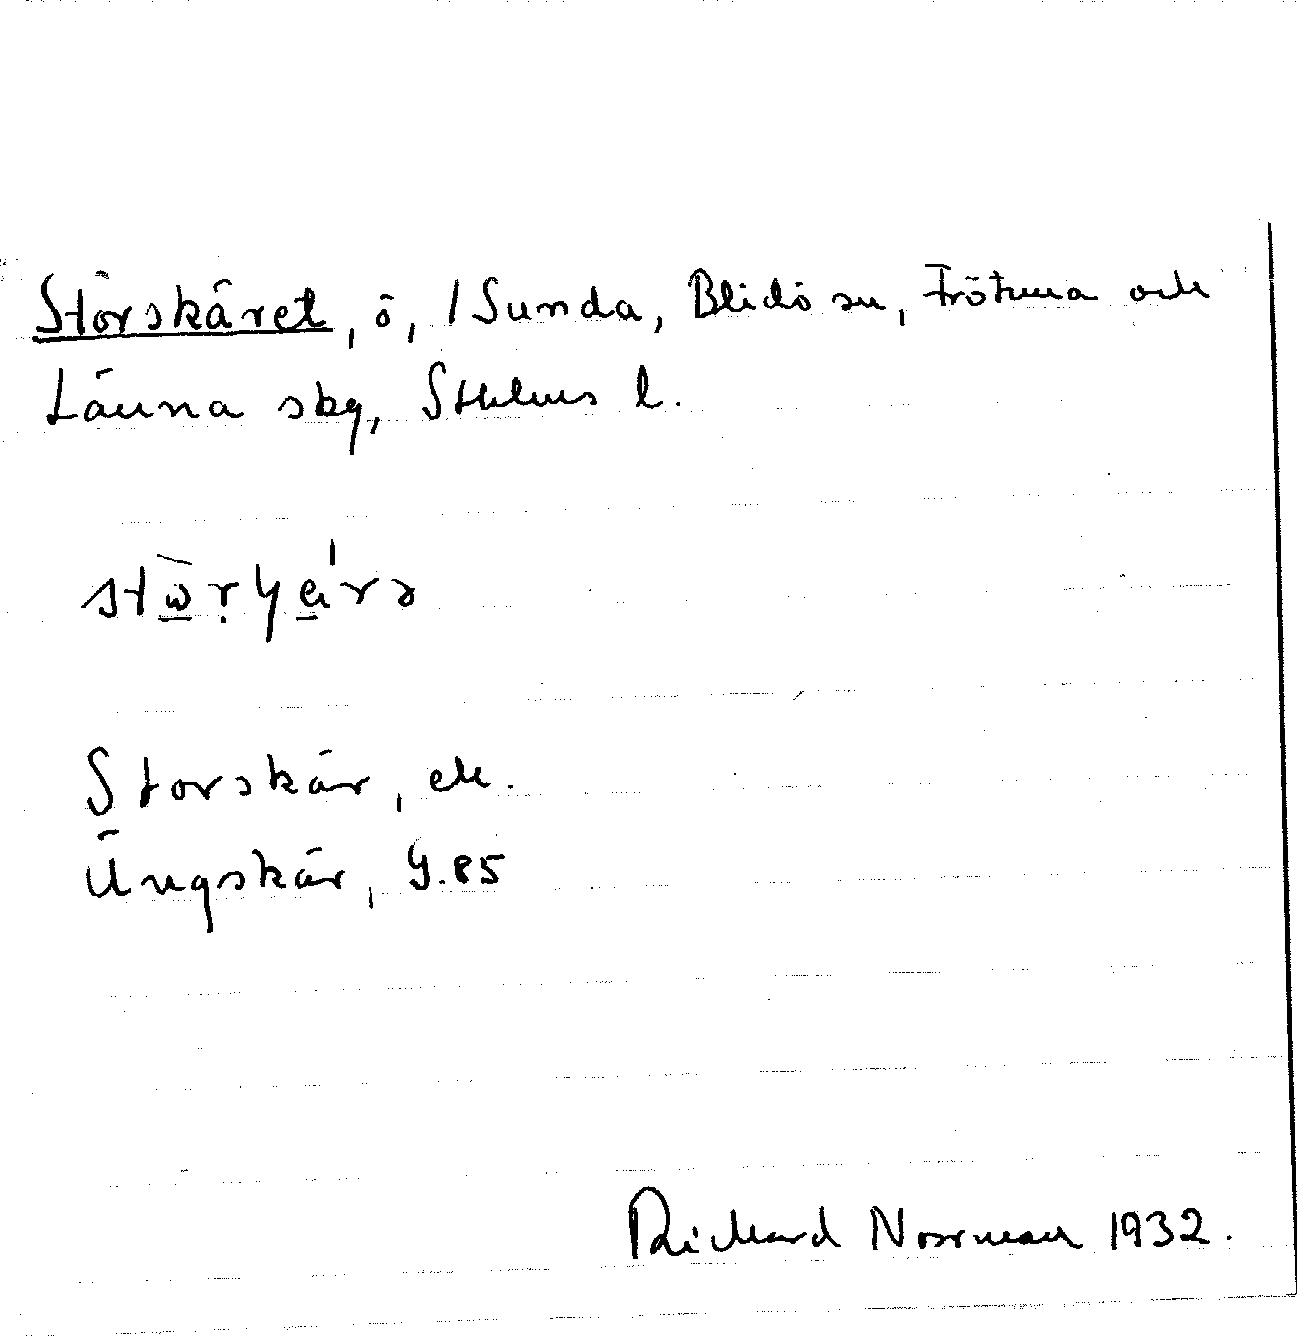 Storskäret, ö, /Sunda, Blidö sn, Frötuna och
Länna skg, Sthlms l.
Storskär, ek.
Ängskär, G.85
Rickard Norrman 1932.